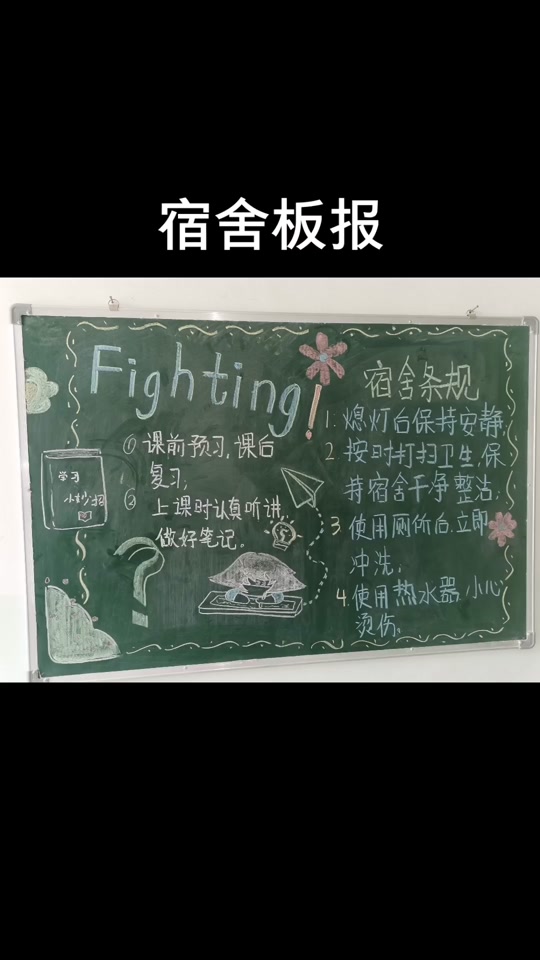 宿舍板报
Fighting!
① 课前预习,课后
复习;
② 上课时认真听讲,
做好笔记。
学习
小妙招
宿舍条规
1. 熄灯后保持安静;
2. 按时打扫卫生,保
持宿舍干净整洁;
3 使用厕所后,立即
冲洗;
4. 使用热水器,小心
烫伤。
?